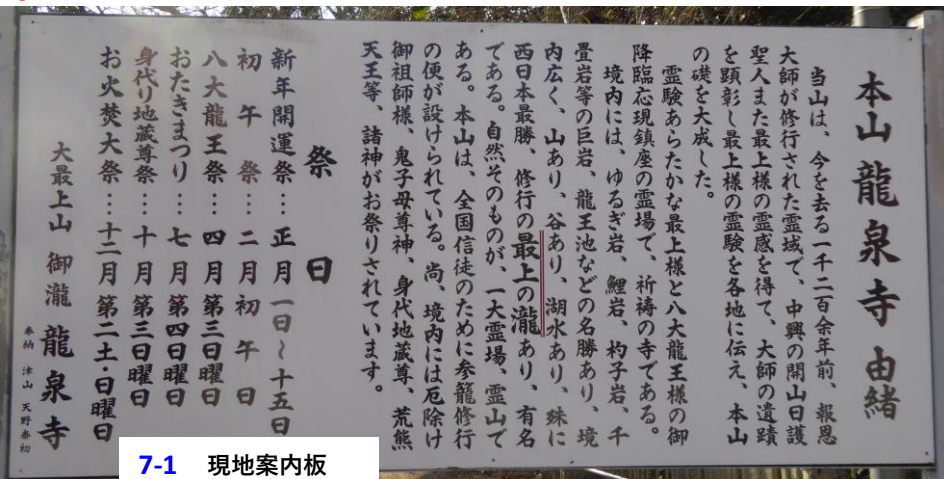 本山 龍泉寺 由緒
当山は、今を去る一千二百余年前、報恩
大師が修行された霊域で、中興の開山日護
聖人また最上様の霊感を得て、大師の遺蹟
を顕彰し最上様の霊験を各地に伝え、本山
の礎を大成した。
霊験あらたかな最上様と八大龍王様の御
降臨応現鎮座の霊場で、祈祷の寺である。
境内には、ゆるぎ岩、鯉岩、杓子岩、千
畳岩等の巨岩、龍王池などの名勝あり、境
内広く、山あり、谷あり、湖水あり、殊に
西日本最勝、修行の最上の瀧あり、有名
である。自然そのものが、一大霊場、霊山で
ある。本山は、全国信徒のために参籠修行
の便が設けられている。尚、境内には厄除け
御祖師様、鬼子母尊神、身代地蔵尊、荒熊
天王等、諸神がお祭りされています。
祭日
新年開運祭…正月一日～十五日
初午祭…二月初午日
八大龍王祭…四月第三日曜日
おたきまつり…七月第四日曜日
身代り地蔵尊祭…十月第三日曜日
お火焚大祭…十二月第二土・日曜日
大最上山 御瀧 龍泉寺
奉納 津山 天野泰初
7-1 現地案内板